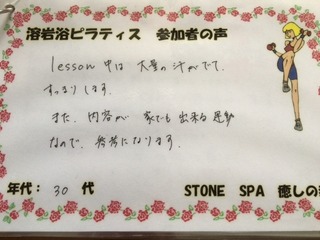 溶岩浴ピラティス 参加者の声
lesson 中は 大量の汗がでて、
すっきりします。
また、内容が 家でも出来る運動
なので、参考になります。
年代： 30 代
STONE SPA 癒しの